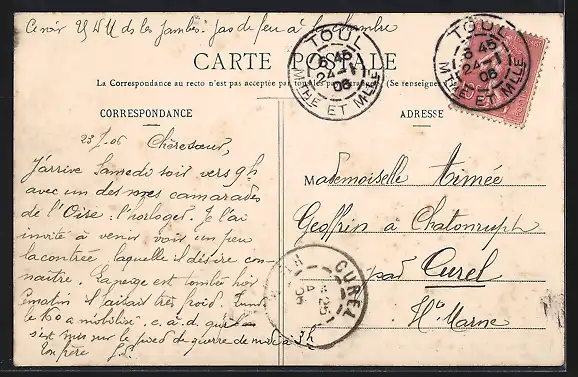 ds les jambes. pas de feu à la chambre
TOUL
6 45
24 - 1
06
MTHE ET MLLE
TOUL
6 45
24 - 1
06
MTHE ET MLLE
CARTE POSTALE
La Correspondance au recto n'est pas acceptée par tous les pays étrangers (Se renseigner
CORRESPONDANCE
ADRESSE
23/1.06 Chère sœur,
J'arrive Samedi soir vers 9h
avec un des mes camarades
de l'Oise : l'horloger. Je l'ai
invité à venir voir un peu
la contrée, laquelle il désire con-
naître. La neige est tombée hier
matin il faisait très froid. Lundi
le 160 a mobilisé c. à. d. qu'il
s'est mis sur le pied de guerre de
Ton frère
3h
Mademoiselle Aimée
Geoffrin à Chatonrupt
par Curel
Hte Marne
CUREL
25
06